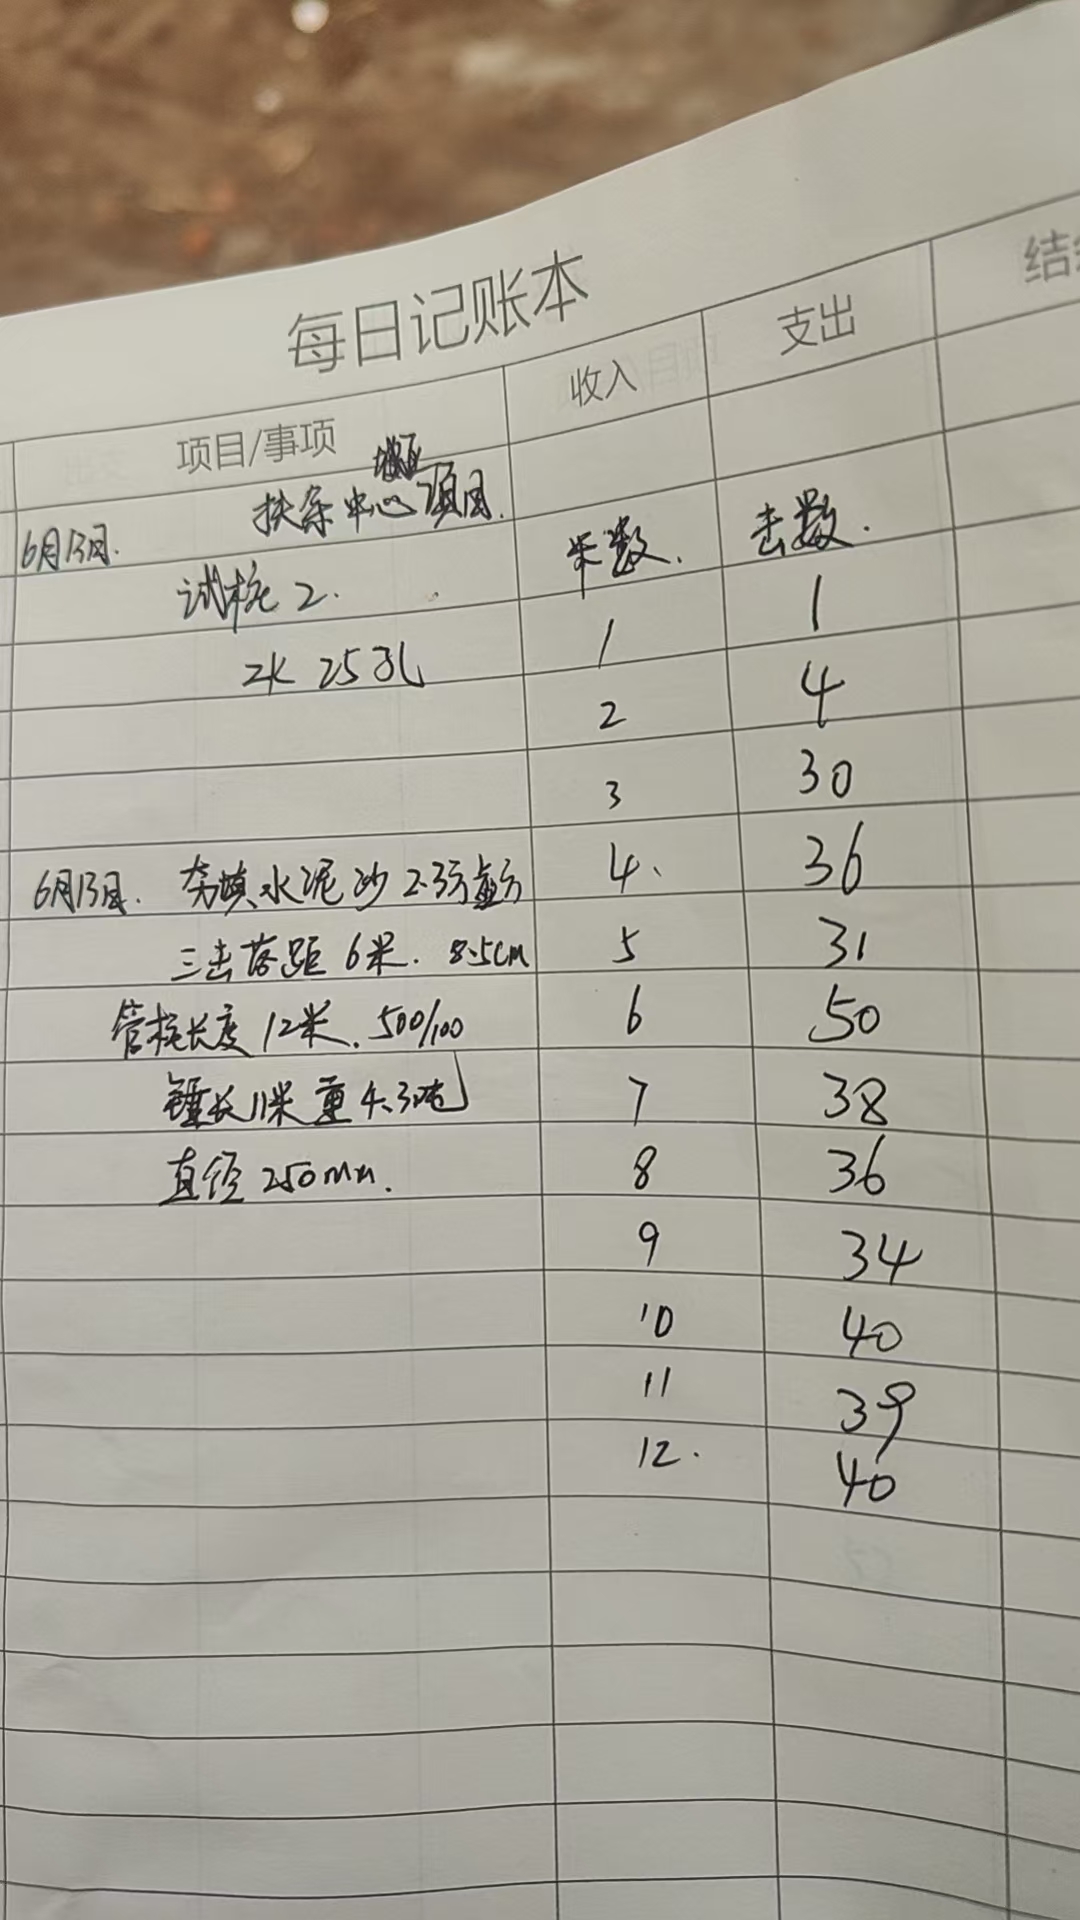 每日记账本
项目/事项 收入 支出
6月13日. 中心项目.
米数. 击数.
试桩2.
ZK 25孔
1 1
2 4
3 30
4. 36
5 31
6 50
7 38
8 36
9 34
10 40
11 39
12. 40
6月13日. 夯填水泥沙2.3方虚方
三击落距6米. 8.5cm
管桩长度12米. 500/100
锤长11米 重4.3吨
直径250mm.